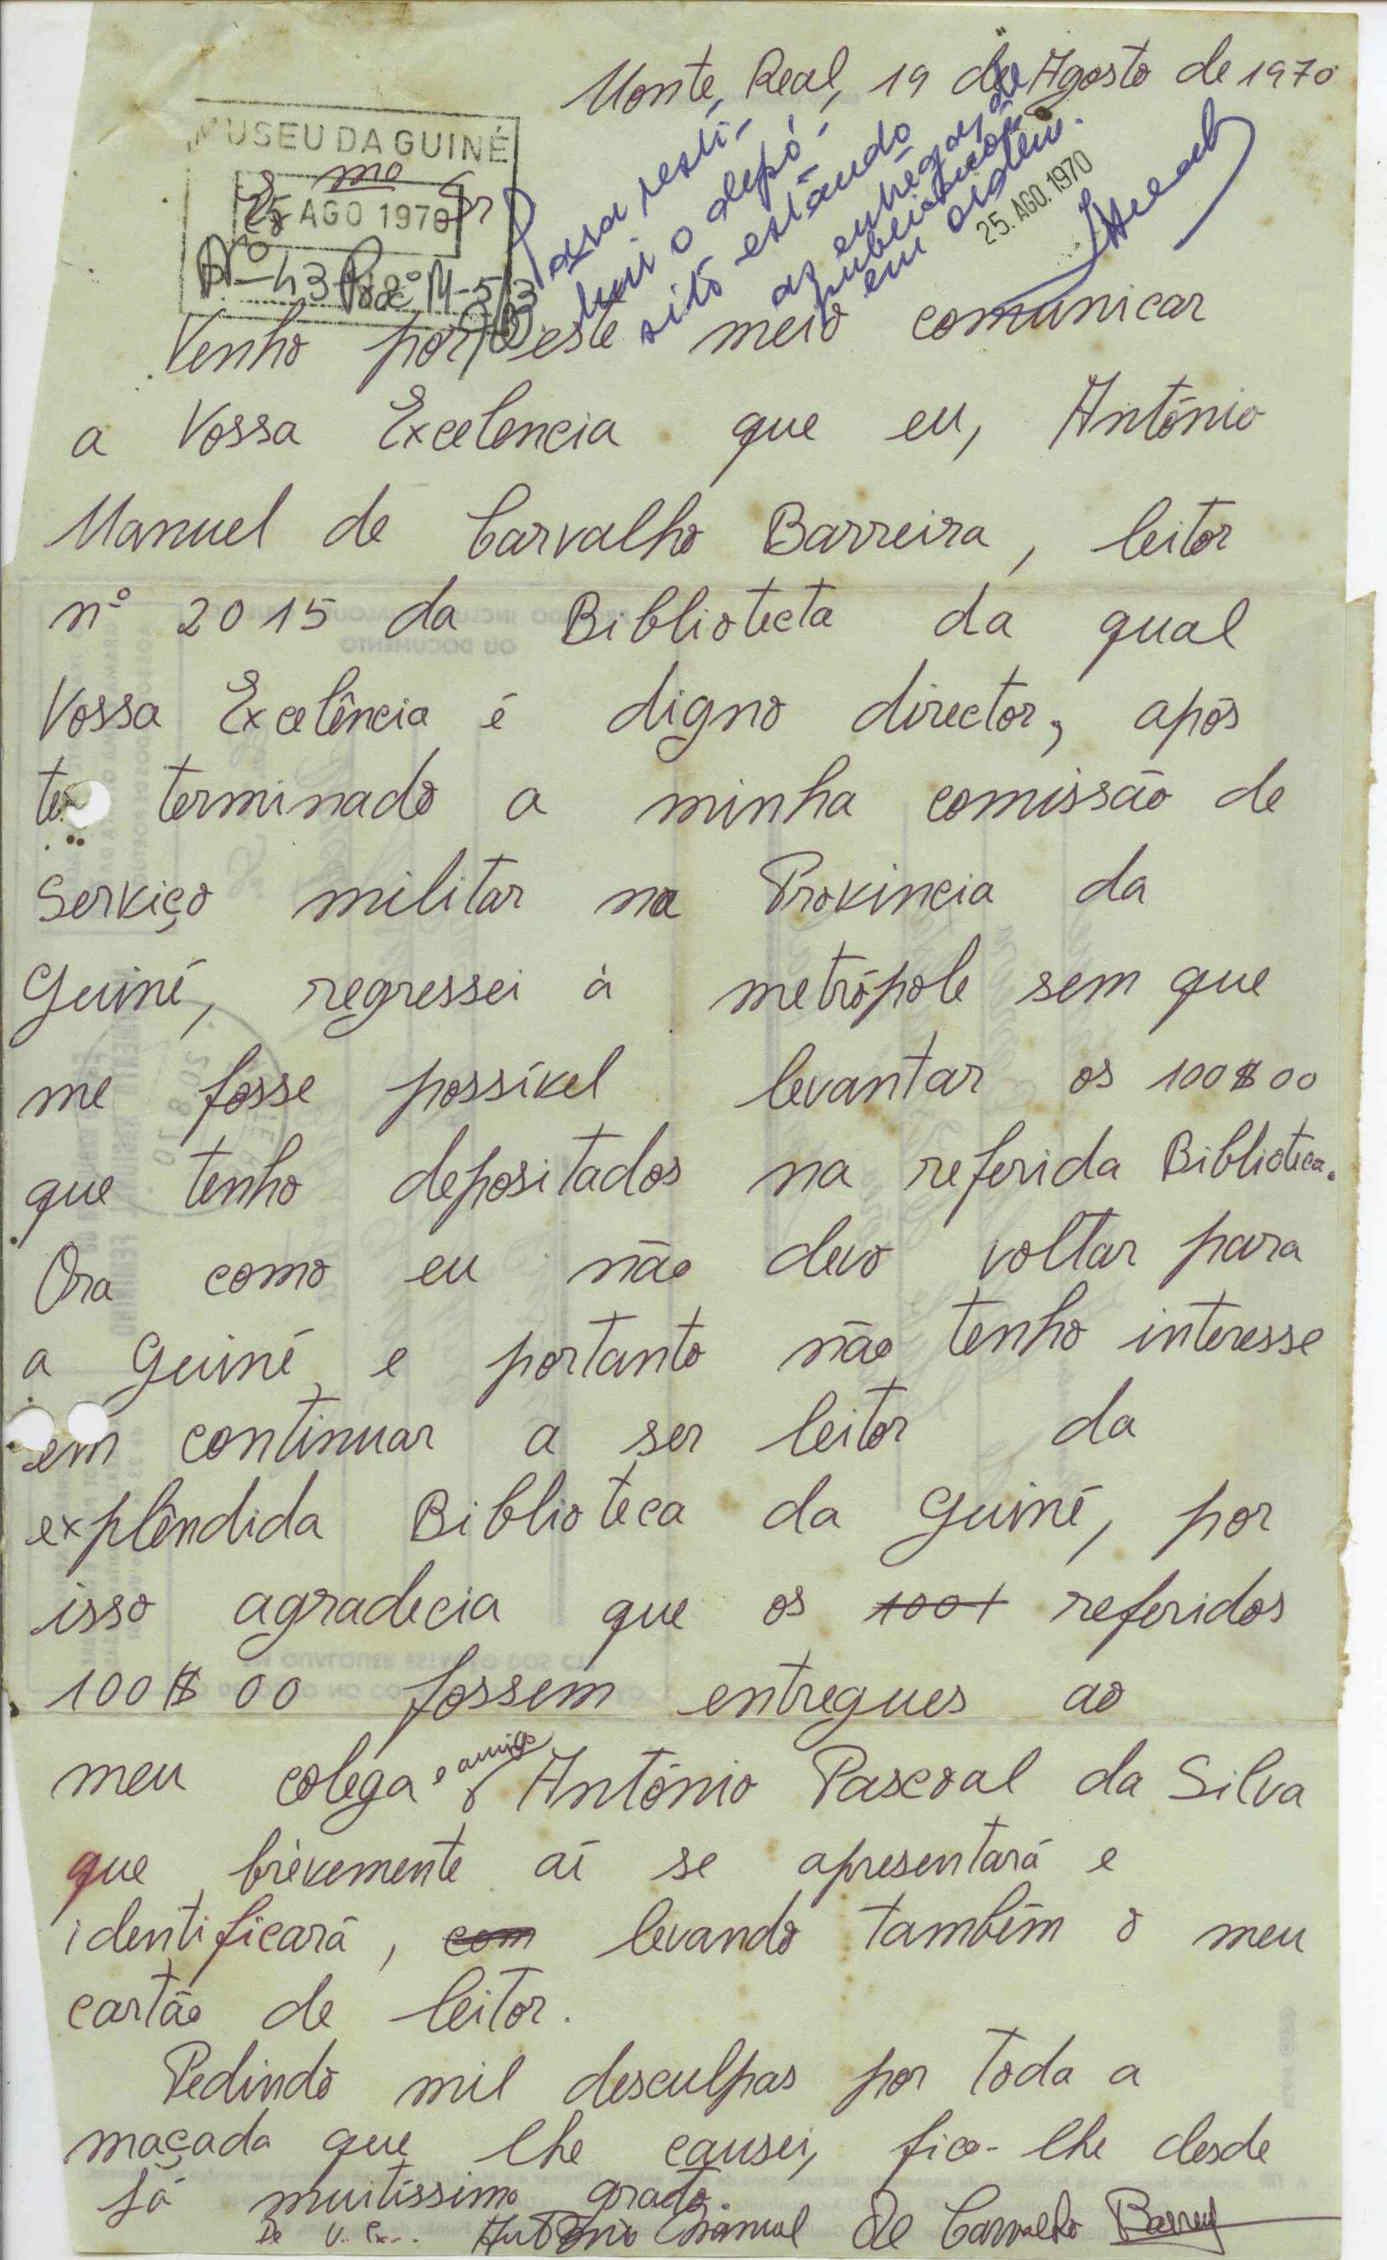 Monte Real, 19 de Agosto de 1970
MUSEU DA GUINÉ
Exmo Sr
25 AGO 1970
Nº-43 Procº M-5/3
Para resti-
tuir o depó-
sito estando
as entregas de
publicações
em ordem.
25. AGO. 1970
Venho por este meio comunicar
a Vossa Excelencia que eu, António
Manuel de Carvalho Barreira, leitor
nº 2015 da Bibliotecta da qual
Vossa Excelência é digno director, após
ter terminado a minha comissão de
Serviço militar na Provincia da
Guiné, regressei à metrópole sem que
me fosse possível levantar os 100$00
que tenho depositados na referida Biblioteca.
Ora como eu não devo voltar para
a Guiné, e portanto não tenho interesse
em continuar a ser leitor da
explêndida Biblioteca da Guiné, por
isso agradecia que os 100$ referidos
100$00 fossem entregues ao
meu colega e amigo António Pascoal da Silva
que brèvemente aí se apresentará e
identificará, com levando também o meu
cartão de leitor.
Pedindo mil desculpas por toda a
maçada que lhe causei, fico-lhe desde
já muitíssimo grato.
De V. Ex.. António Manuel de Carvalho Barreira